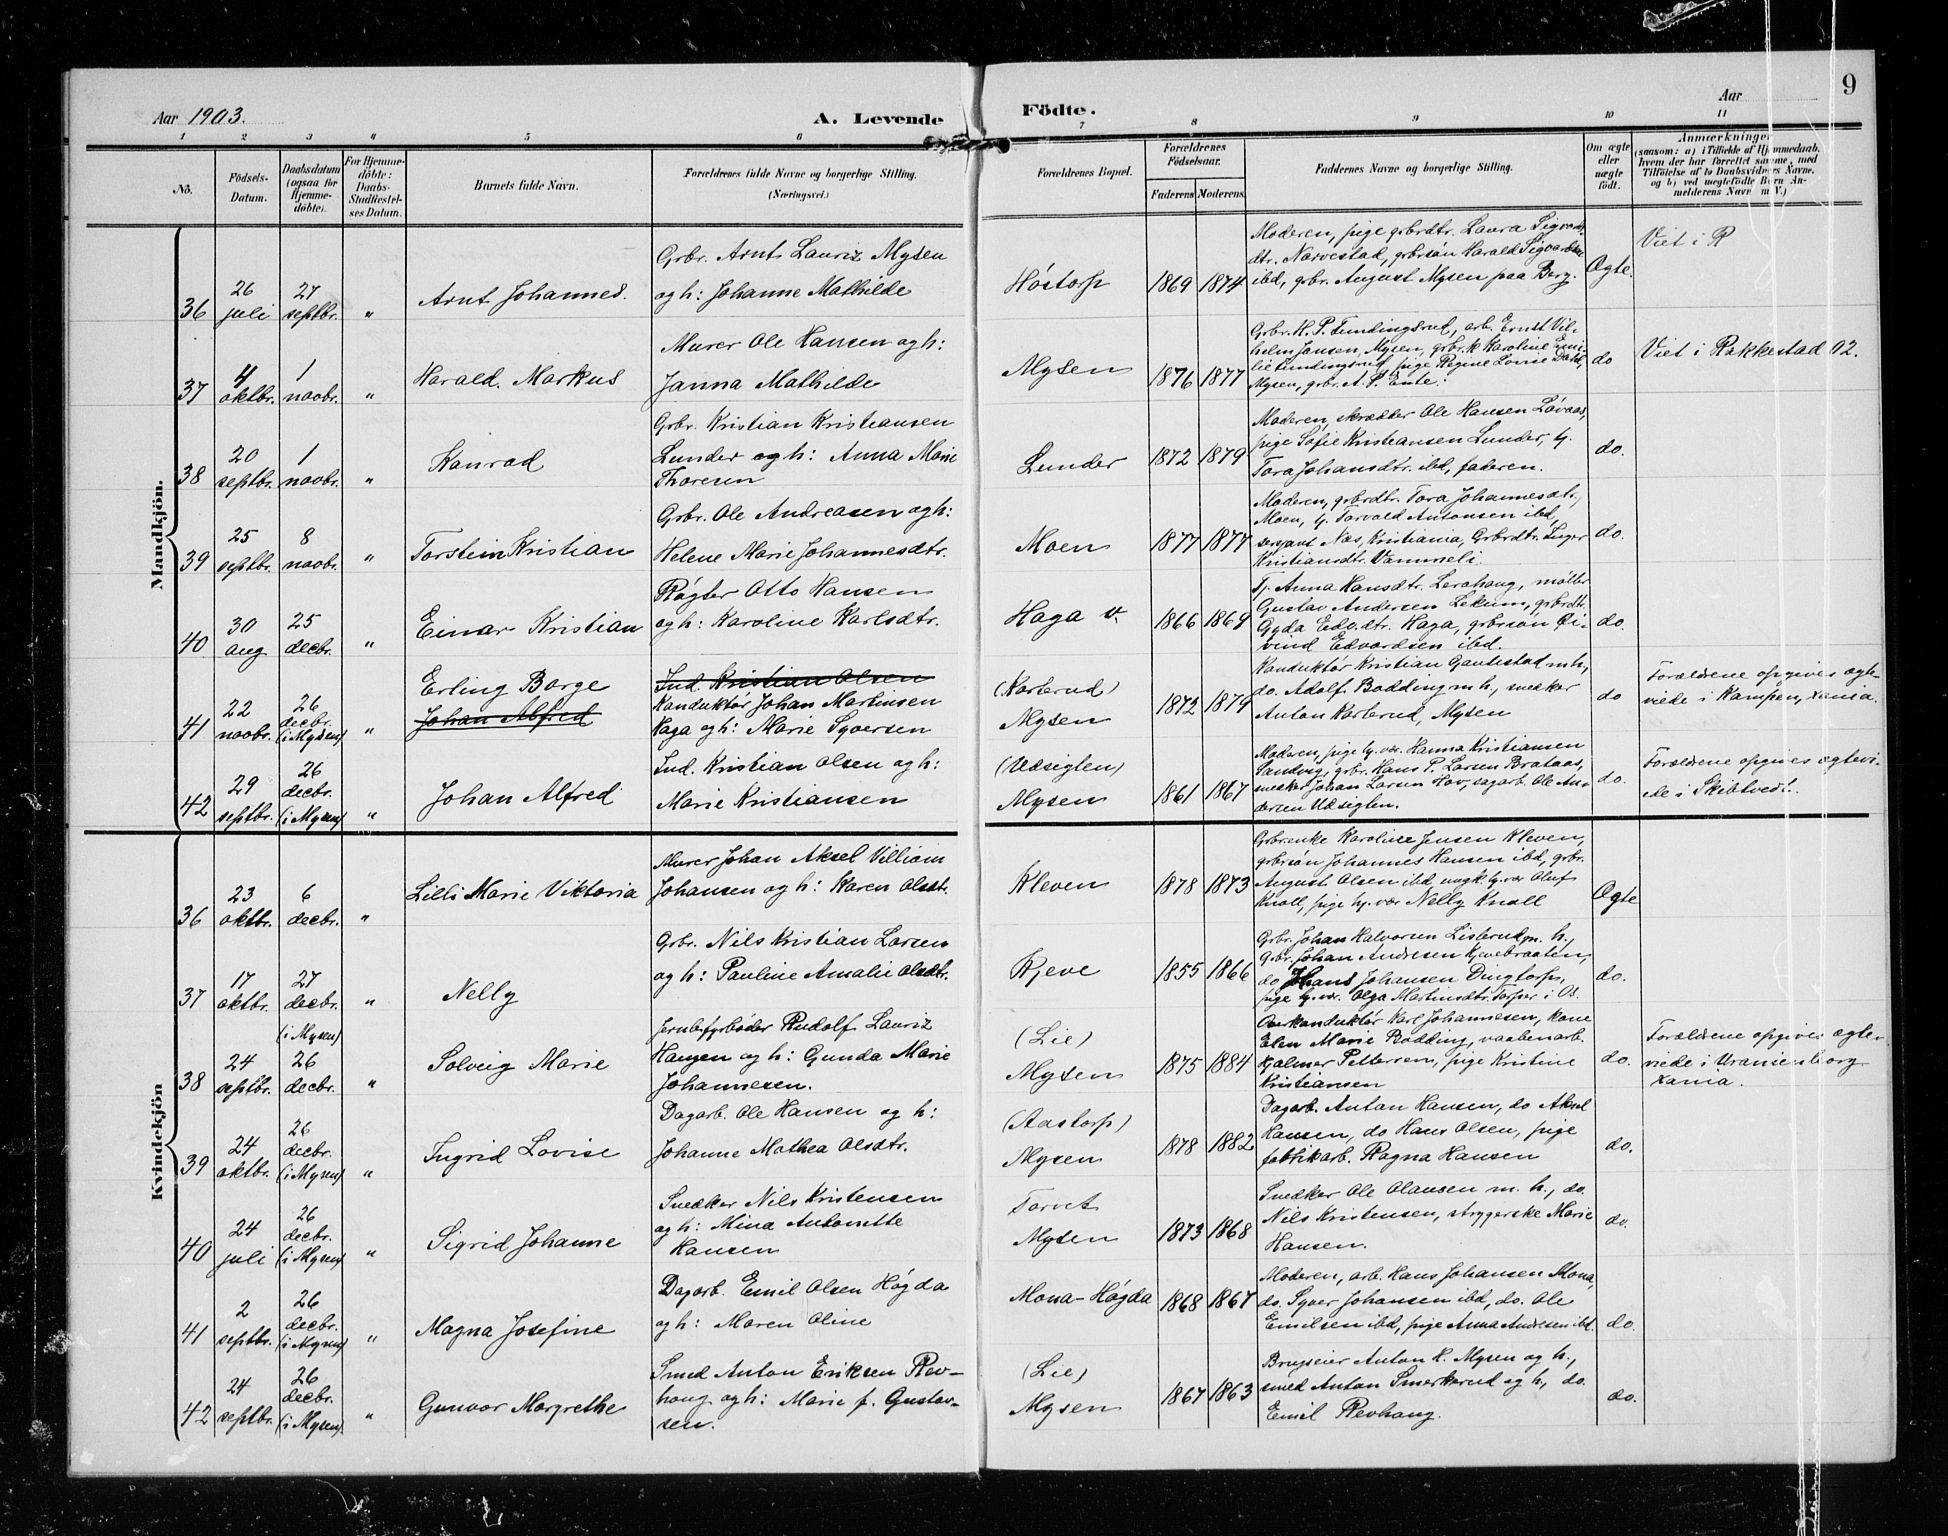 Aar 1903.
A. Levende
Födte.
Aar
9
1 2 3 4 5 6 7 8 9 10 11
No.
Födsels-
Datum.
Daabsdatum
(ogsaa for
Hjemme-
döbte).
For Hjemme-
döbte:
Daabs-
Stadfæstel-
ses Datum.
Barnets fulde Navn.
Forældrenes fulde Navne og borgerlige Stilling.
(Næringsvei.)
Forældrenes Bopæl.
Forældrenes
Födselsaar.
Faderens Moderens
Faddernes Navne og borgerlige Stilling.
Om ægte
eller
uægte
födt.
Anmærkninger
(saasom: a) i Tilfælde af Hjemmedaab,
hvem der har forrettet samme, med
Tilföielse af to Daabsvidners Navne,
og b) ved uægtefödte Børn An-
melderens Navn m. V.)
Mandkjön.
36
26
juli
27
septbr.
"
Arnt Johannes.
Grbr. Arnt Lauriz Mysen
og h: Johanne Mathilde
Höstorp
1869 1874
Moderen, pige grbrdtr. Laura Sigvards
dtr. Narvestad, grbrsön Harald Sigvardsen
ibd, grbr. August Mysen paa Berg.
Ægte.
Viet i R
37
4
oktbr.
1
novbr.
"
Harald. Markus
Murer Ole Hansen og h:
Janna Mathilde
Mysen
1876 1877
Grbr. H. P. Fundingsrud, arb. Ernst Vil-
helm Jansen, Mysen, grbr.k Karoline Emi-
lie Fundingsrud, pige Regine Lovise Dahl,
Mysen, grbr. A. P. Ente.
do
Viet i Rakkestad 02.
38
20
septbr.
1
novbr.
"
Konrad
Grbr. Kristian Kristiansen
Lunder og h: Anna Marie
Thoresen
Lunder
1872 1879
Moderen, skrædder Ole Hansen Lövaas,
pige Sofie Kristiansen Lunder, tj.
Tora Johansdtr. ibd, faderen.
do.
39
25
septbr.
8
novbr.
"
Torstein Kristian
Grbr. Ole Andreasen og h:
Helene Marie Johannesdtr.
Moen
1877 1877
Moderen, grbrdtr. Tora Johannesdtr.,
Moen, tj. Torvald Antonsen ibd,
serjant Næs, Kristiania, Grbrdtr. Inger
Kristiansdtr. Vammeli.
do.
40
30
aug
25
decbr.
"
Einar Kristian
Rögter Otto Hansen
og h: Karoline Karlsdtr.
Haga v.
1866 1869
Tj. Anna Hansdtr. Lerohaug, möller
Gustav Andersen Lekum, grbrdtr.
Gyda Edv.dtr. Haga, grbrsön Öi-
vind Edvardsen ibd.
do.
41
22
novbr.
26
decbr.
(i Mysen)
"
Erling Borge
Johan Alfred
Ind. Kristian Olsen
Konduktör Johan Martinsen
Haga og h: Marie Syversen
(Karlsrud)
Mysen
1872 1879
Konduktör Kristian Gautestad m h,
do. Adolf Bodding m h, snedker
Anton Karlsrud, Mysen
do
Forældrene opgives ægte-
viede i Kampen, Xania.
42
29
septbr.
26
decbr.
(i Mysen)
"
Johan Alfred
Ind. Kristian Olsen og h:
Marie Kristiansen
(Udsigten)
Mysen
1861 1867
Moderen, pige tj. vær. Hanna Kristiansen
Sandvig, grbr. Hans P. Larsen Brataas,
snedker Johan Larsen Hov, sagarb. Ole An-
dersen Udsigten.
do.
Forældrene opgives ægtevi-
ede i Skibtvedt.
Kvindekjön
36
23
oktbr.
6
decbr.
"
Lilli Marie Viktoria
Murer Johan Aksel Villiam
Johansen og h: Karen Olsdt.
Kleven
1878 1873
Grbr.enke Karoline Jensen Kleven,
grbrsön Johannes Hansen ibd, grbr.
August Olsen ibd ungk. tj. vær Oluf
Knoll, pige tj. vær Nelly Knoll
Ægte
37
17
oktbr.
27
decbr.
"
Nelly
Grbr. Nils Kristian Larsen
og h: Pauline Amalie Olsdtr.
Kjeve
1855 1866
Grbr. Johan Halvorsen Listerud m. h,
grbr. Johan Andresen Kjevebraaten,
do Hans Johansen Dingtorp,
pige tj. vær. Olga Martinsdtr. Torper i Os.
do.
38
24
septbr.
(i Mysen)
26
decbr.
"
Solveig Marie
Jernb.fyrböder Rudolf Lauriz
Hansen og h: Gunda Marie
Johannesen.
(Lie)
Mysen
1875 1884
Overkonduktör Karl Johannesen, kone
Elen Marie Rodding, vaabenarb.
Hjalmar Pettersen, pige Kristine
Kristiansen
do.
Forældrene opgives ægte-
viede i Uranienborg
Xania.
39
24
oktbr.
26
decbr.
(i Mysen)
"
Ingrid Lovise
Dagarb. Ole Hansen og h:
Johanne Mathea Olsdtr.
(Aastorp)
Mysen
1878 1882
Dagarb. Anton Hansen, do Aksel
Hansen, do Hans Olsen, pige
fabrikarb. Ragna Hansen
do.
40
24
juli
26
decbr.
(i Mysen)
"
Sigrid Johanne
Snedker Nils Kristensen
og h: Mina Antonette
Hansen
Torvet
Mysen
1873 1868
Snedker Ole Olausen m. h., do.
Nils Kristensen, strygerske Marie
Hansen.
do.
41
2
septbr.
26
decbr.
(i Mysen)
"
Magna Josefine
Dagarb. Emil Olsen Högda
og h: Maren Oline
Mona-Högda
1868 1867
Moderen, arb. Hans Johansen Mona,
do. Syver Johansen ibd, do. Ole
Emilsen ibd, pige Anna Andresen ibd.
do.
42
24
septbr.
26
decbr.
(i Mysen)
"
Gunvor Margrethe
Smed Anton Eriksen Rev-
haug og h: Marie f. Gustav-
sen.
(Lie)
Mysen
1867 1863
Brugseier Anton K. Mysen og h.,
smed Anton Smerkerud og h, do.
Emil Revhaug.
do.